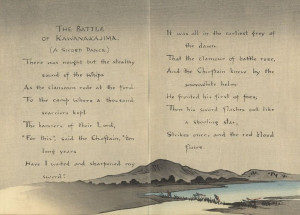 THE BATTLE
OF KAWANAKAJIMA.
(A SWORD DANCE)
There was nought but the stealthy
sound of the whips
As the clansmen rode at the ford
To the camp where a thousand
warriors kept
The banners of their Lord,
"For this", said the Chieftain, "ten
long years
Have I waited and sharpened my
sword!"
It was all in the earliest grey of
the dawn
That the clamour of battle rose,
And the Chieftain knew by the
helm
He fronted his first of foes;
Then his sword flashes out like
a shooting star,
Strikes once, and the red blood
flows